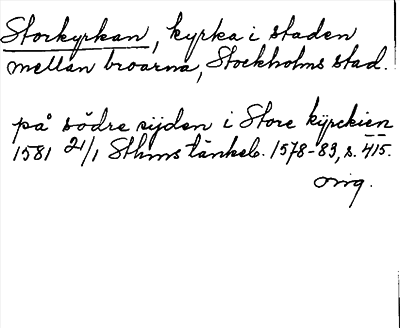 Storkyrkan, kyrka i staden
mellan broarna, Stockholms stad.
på södre sijden i Store kÿrckien
1581 21/1 Sthms tänkeb. 1578-83, s. 415.
orig.